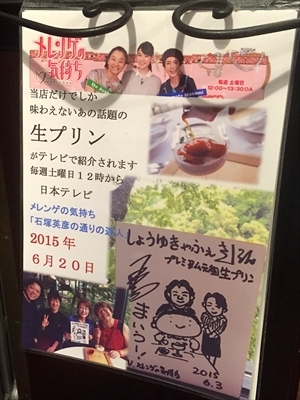 メレンゲの
気持ち
毎週 土曜日
12:00〜13:30
当店だけでしか
味わえないあの話題の
生プリン
がテレビで紹介されます
毎週土曜日12時から
日本テレビ
メレンゲの気持ち
「石塚英彦の通りの達人
2015年
6月20日
しょうゆきゃふぇ
プレミアム元祖生プリン
まいうー!
メレンゲの気持ち
2015
6.3